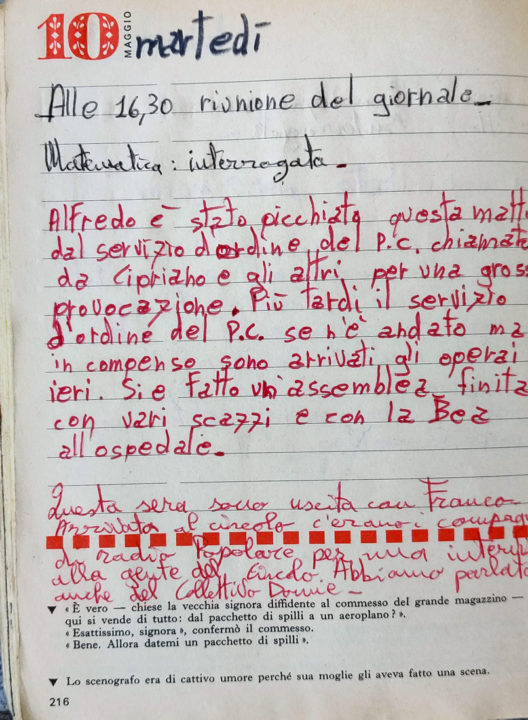 10 MAGGIO martedì
Alle 16,30 riunione del giornale_
Matematica: interrogata_
Alfredo è stato picchiato questa matt
dal servizio d'ordine del P.C. chiamat
da Cipriano e gli altri per una gross
provocazione. Più tardi il servizio
d'ordine del P.C. se n'è andato ma
in compenso sono arrivati gli operai
ieri. Si è fatto un'assemblea finita
con vari scazzi e con la Bea
all'ospedale_
Questa sera sono uscita con Franco_
Arrivata al circolo c'erano i compag
di radio Popolare per una interv
alla gente del Circolo. Abbiamo parlato
anche del Collettivo Donne_
▼ « È vero — chiese la vecchia signora diffidente al commesso del grande magazzino —
qui si vende di tutto: dal pacchetto di spilli a un aeroplano? ».
« Esattissimo, signora », confermò il commesso.
« Bene. Allora datemi un pacchetto di spilli ».
▼ Lo scenografo era di cattivo umore perché sua moglie gli aveva fatto una scena.
216